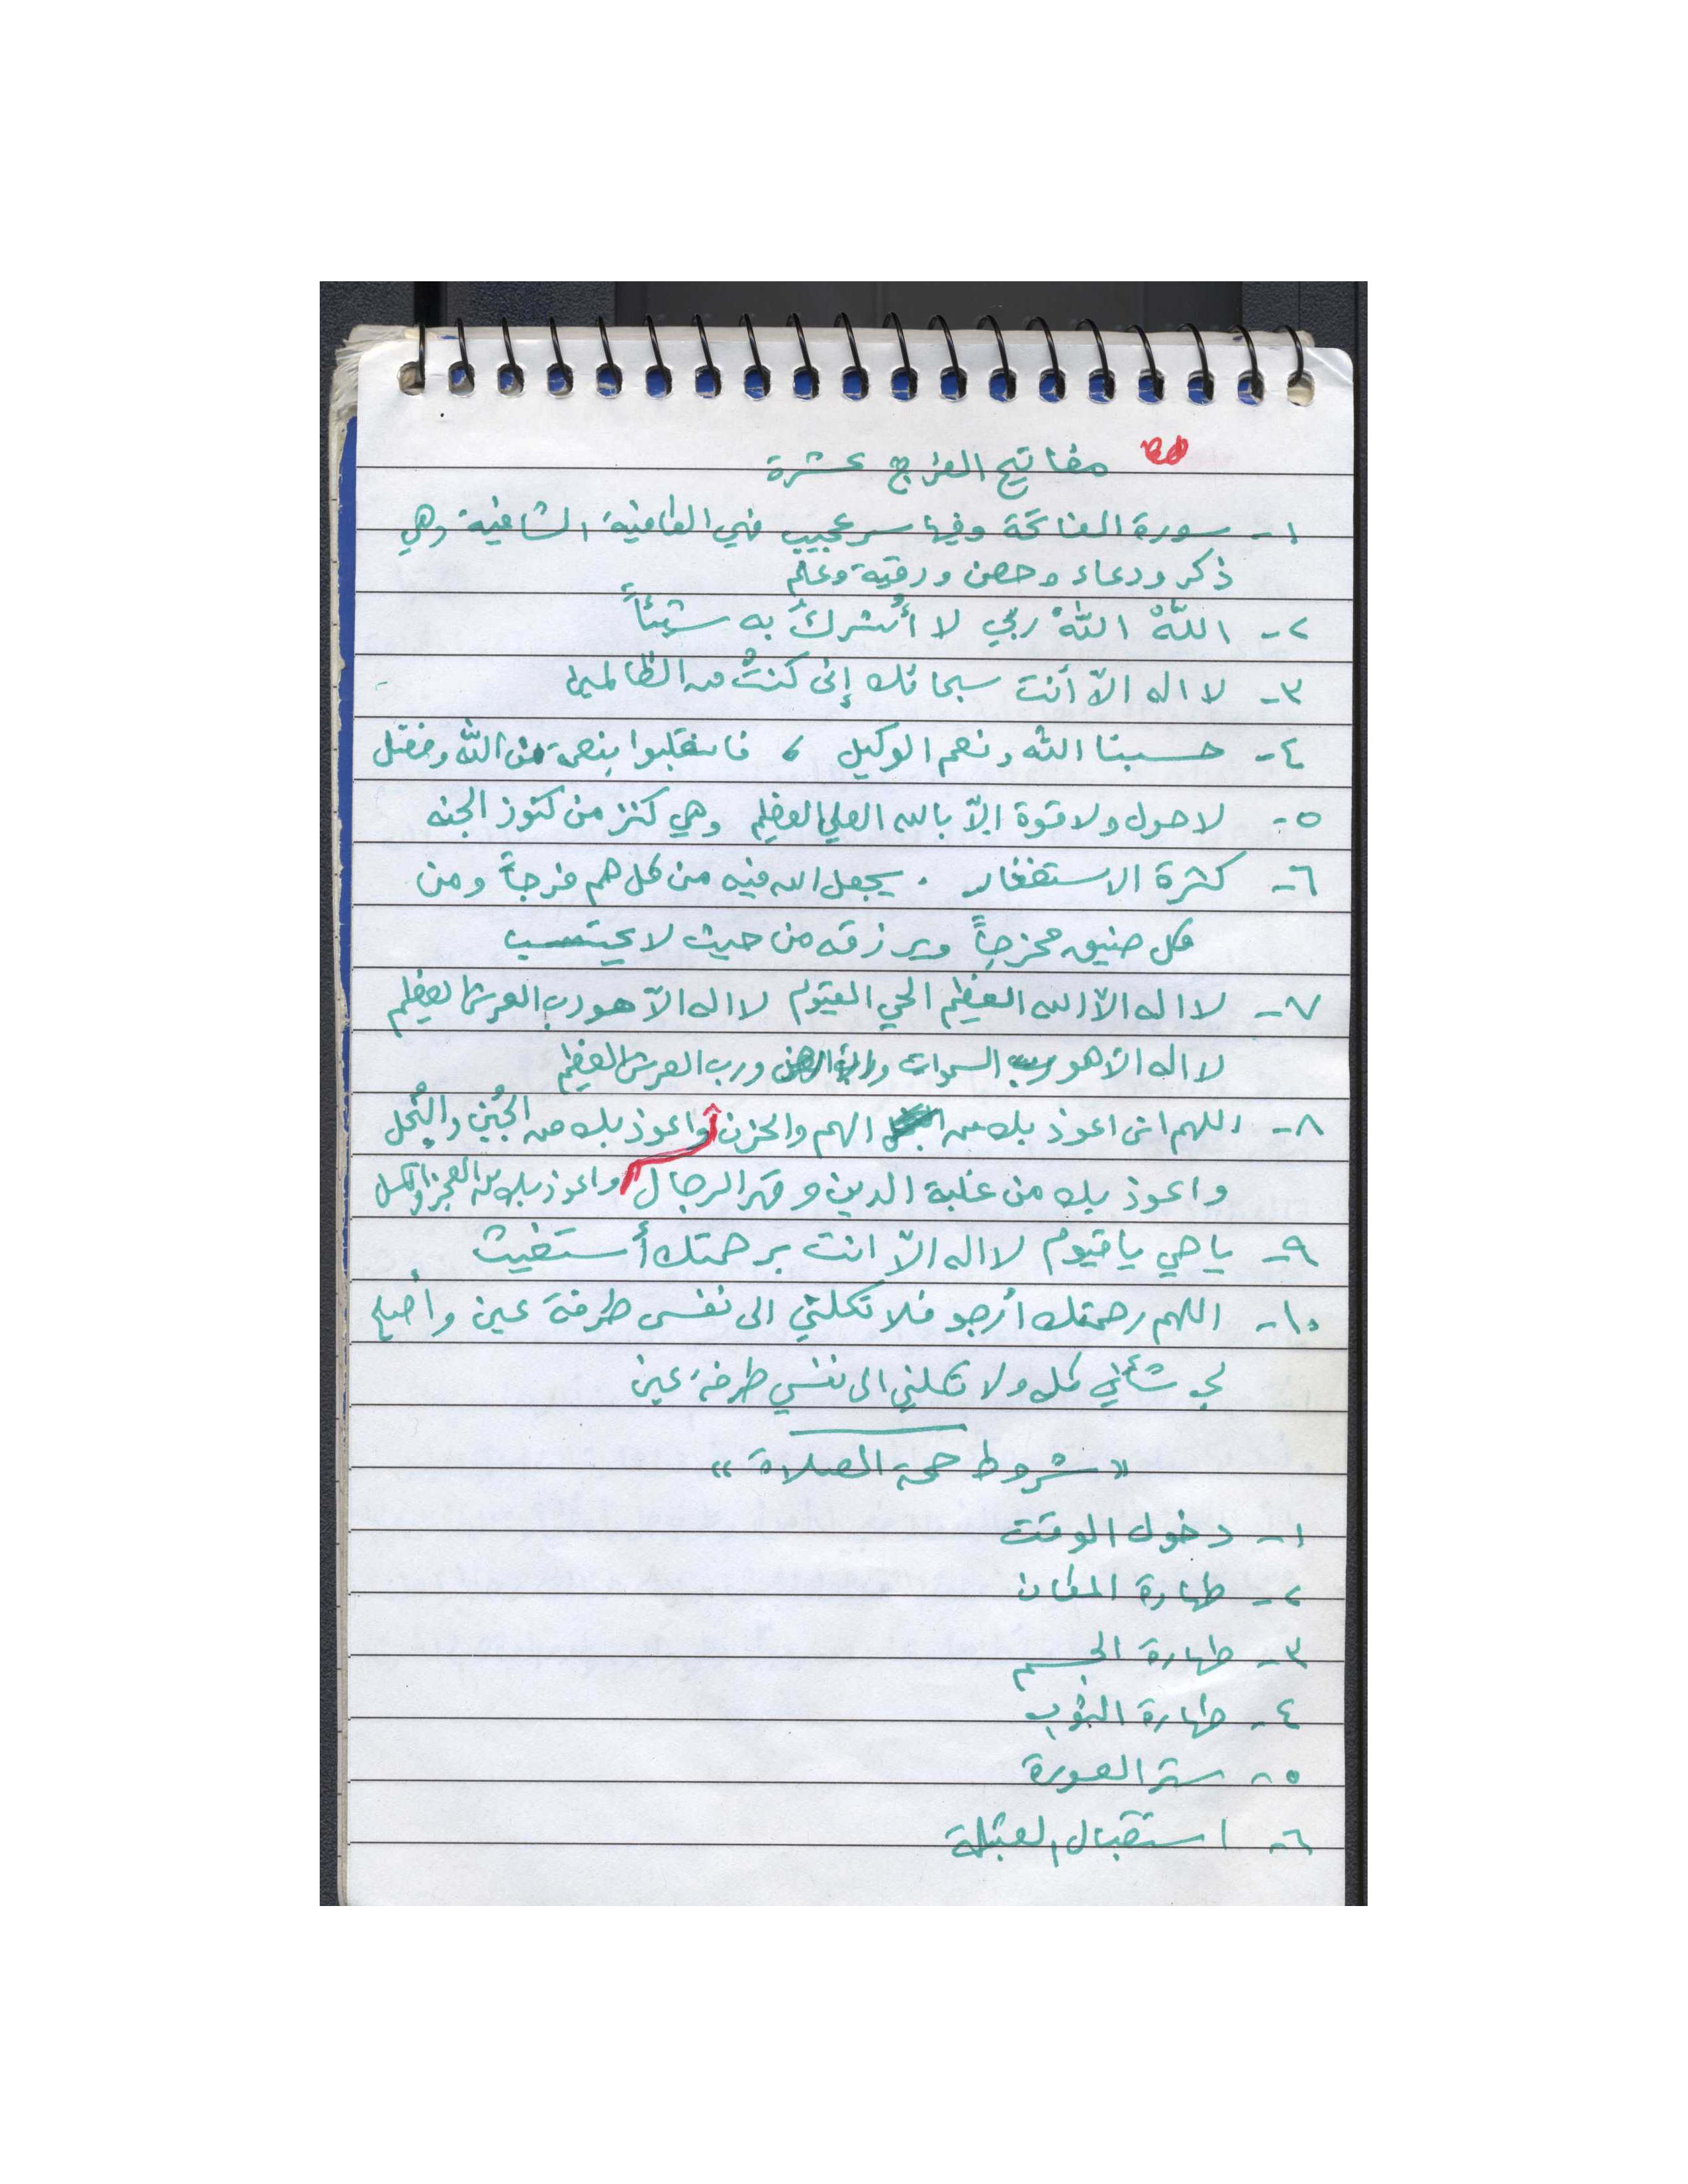 مفاتيح الفرج عشرة
١- سورة الفاتحة وفيها سر عجيب فهي الكافية الشافية وهي
ذكر ودعاء وحصن ورقية وعلم
٢- اللهُ اللهُ ربي لا أُشركُ به شيئاً
٣- لا اله الاّ أنت سبحانك إني كنتُ من الظالمين
٤- حسبنا الله ونعم الوكيل ، فانقلبوا بنعمة من الله وفضل
٥- لا حول ولا قوة إلاّ بالله العلي العظيم وهي كنز من كنوز الجنه
٦- كثرة الاستغفار . يجعل الله فيه من كل هم فرجاً ومن
كل ضيق مخرجاً ويرزقه من حيث لا يحتسب
٧- لا اله الاّ الله العظيم الحي القيوم لا اله الاّ هو رب العرش العظيم
لا اله الا هو رب السموات والارض ورب العرش العظيم
٨- اللهم اني اعوذ بك من الهم والحزن واعوذ بك من الجُبن والبُخل
واعوذ بك من غلبة الدين وقهر الرجال واعوذ بك من العجز والكسل
٩- يا حي يا قيوم لا اله الاّ انت برحمتك أستغيث
١٠- اللهم رحمتك أرجو فلا تكلني الى نفسي طرفة عين وأصلح
لي شأني كله ولا تكلني الى نفسي طرفة عين
« شروط صحة الصلاة »
١- دخول الوقت
٢- طهارة المكان
٣- طهارة الجسم
٤- طهارة الثوب
٥- ستر العورة
٦- استقبال القبلة